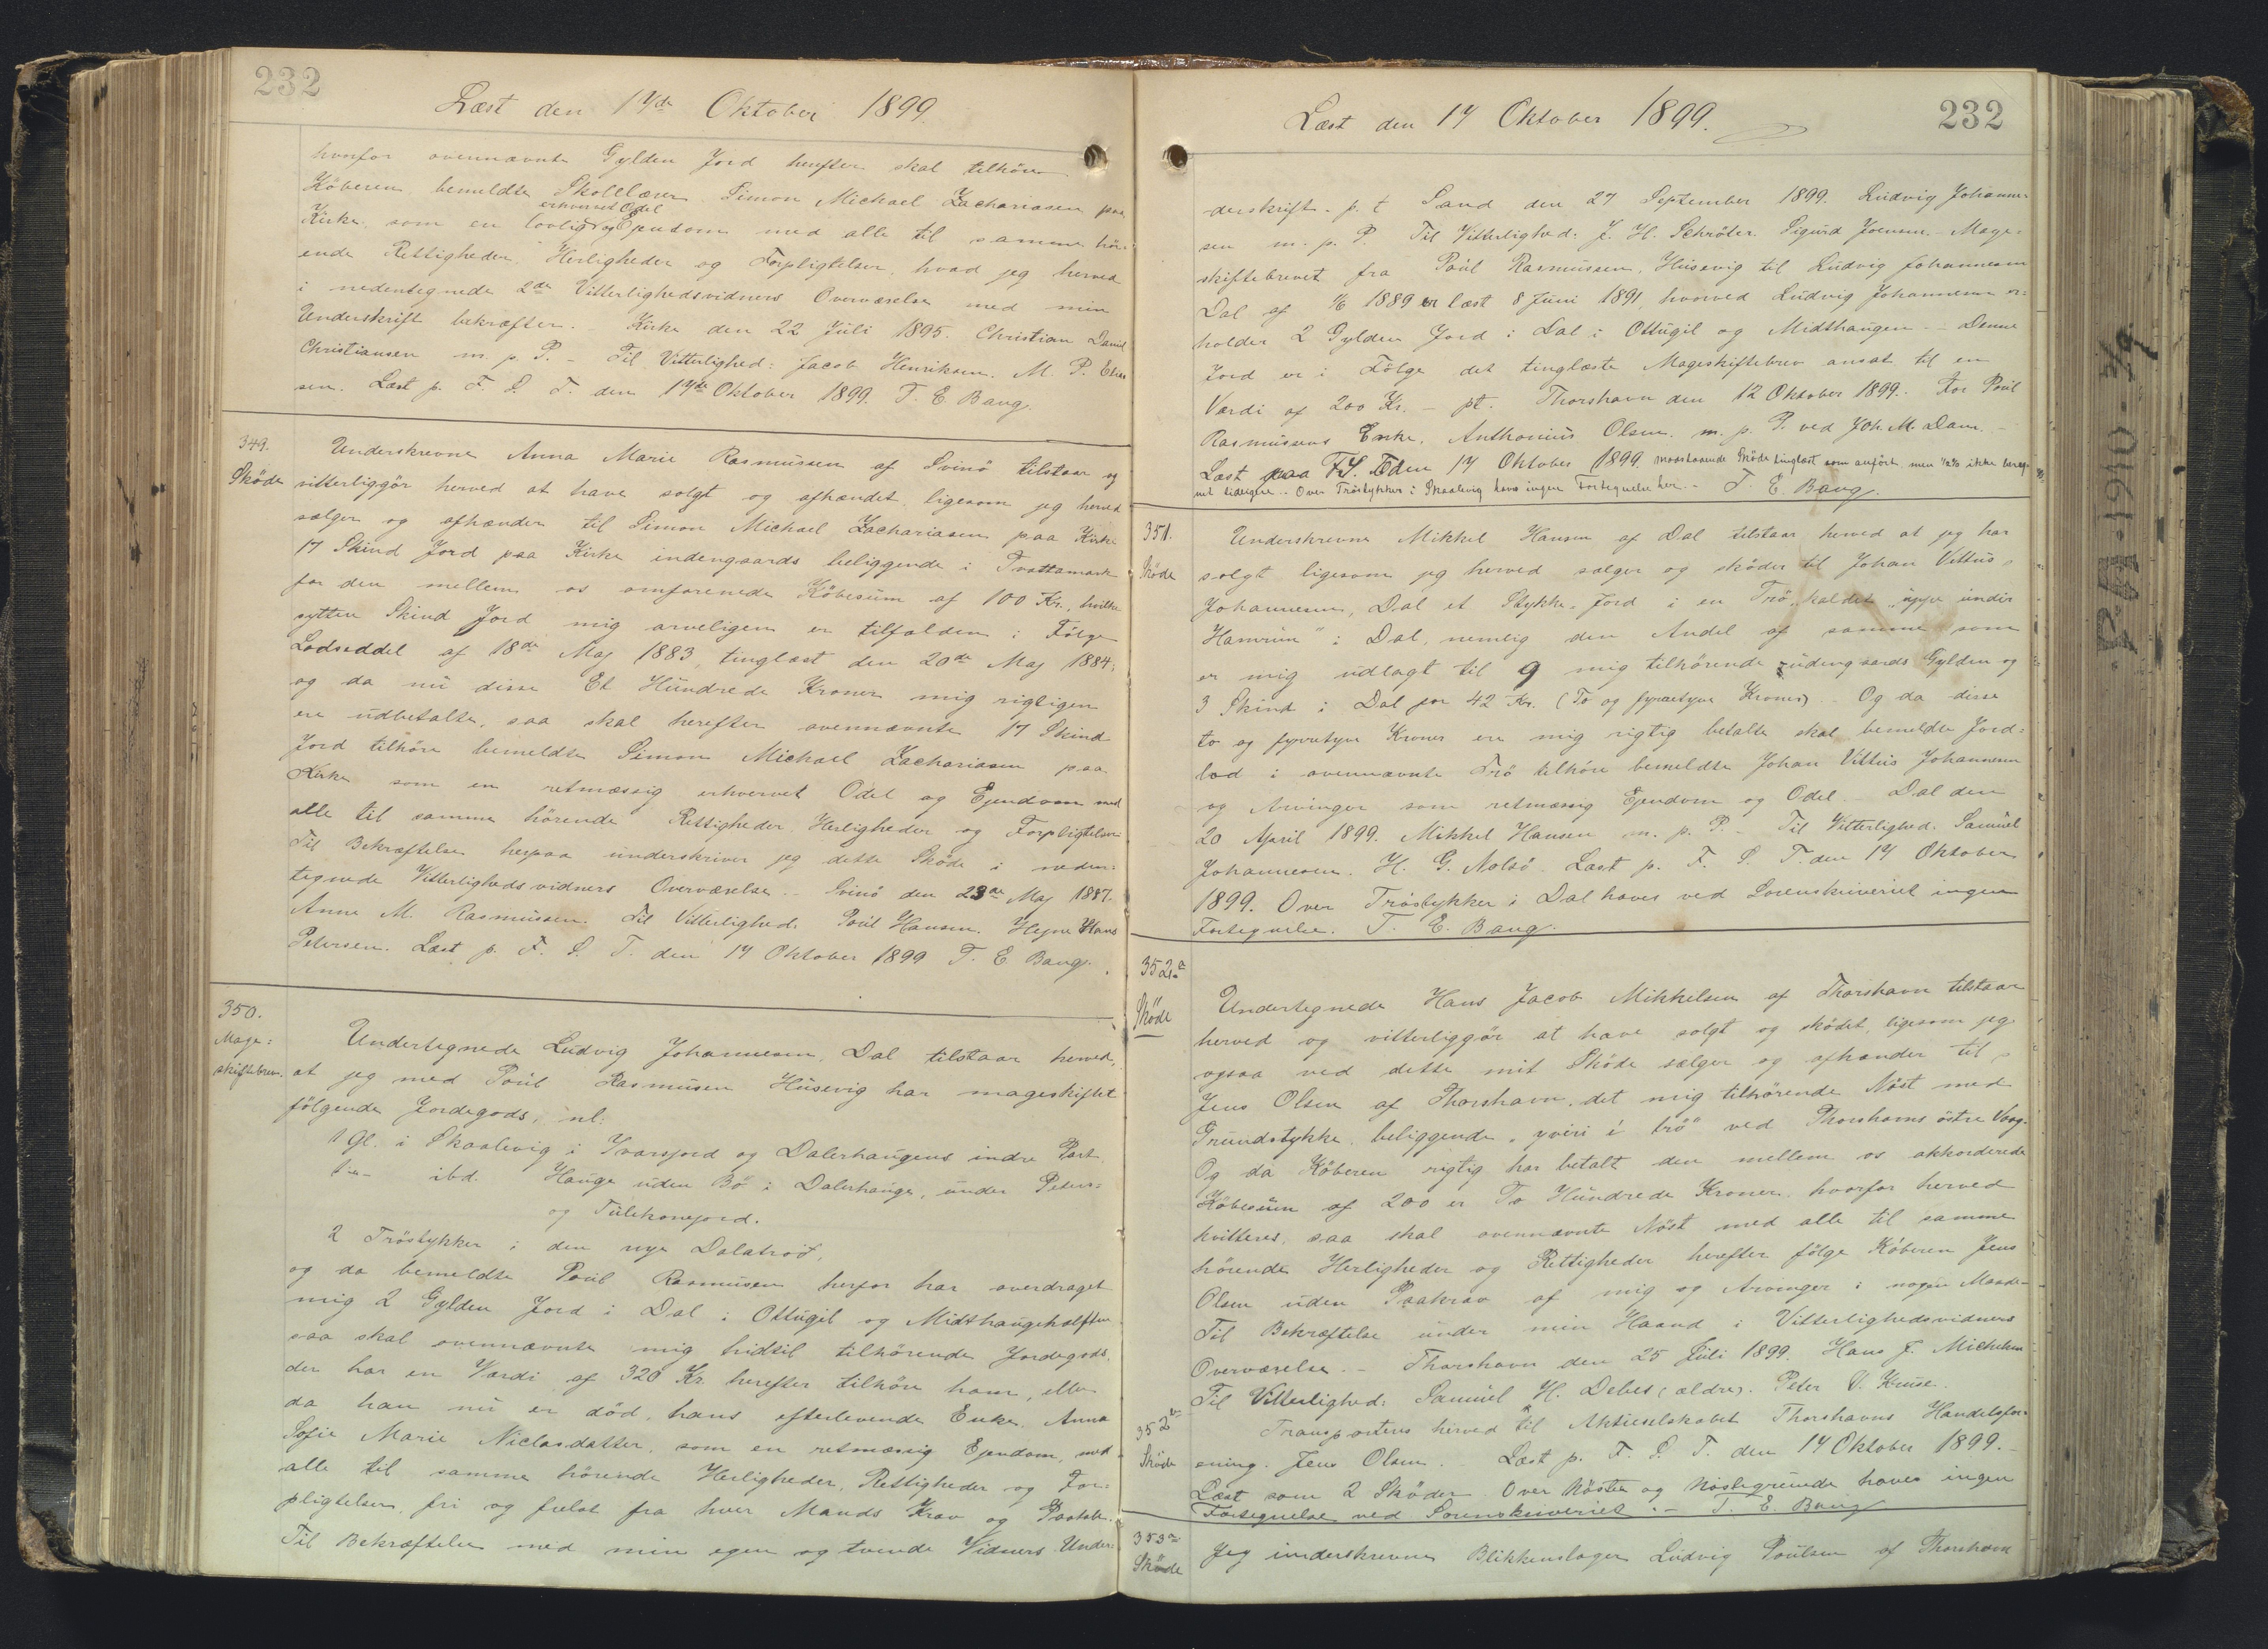 232
Læst den 17de Oktober 1899.
hvorfor ovennævnte Gylden Jord herefter skal tilhöre
Köberen, bemeldte Skolelærer Simon Michael Zachariasen paa
erhvervet Odel
Kirke, som en lovlig og Ejendom med alle til samme hör-
ende Rettigheder, Herligheder og Forpligtelser, hvad jeg herved
i nedentegnede 2de Vitterlighedsvidners Overværelse med min
Underskrift bekræfter. - Kirke den 22 Juli 1895. Christian Daniel
Christiansen m. p. P. - Til Vitterlighed: Jacob Henriksen. M. P. Elias
sen. Læst p. F. S. T. den 17de Oktober 1899. T. E. Bang.
349.
Sköde
Underskrevne Anna Marie Rasmussen af Svinö tilstaar og
vitterliggör herved at have solgt og afhændet, ligesom jeg herved
sælger og afhænder til Simon Michael Zachariasen paa Kirke
17 Skind Jord paa Kirke indengaards beliggende i Tvattamark
for den mellem os omforenede Köbesum af 100 Kr., hvilke
sytten Skind Jord mig arveligen er tilfalden i Fölge
Lodseddel af 18de Maj 1883, tinglæst den 20de Maj 1884;
og da nu disse Et Hundrede Kroner mig rigtigen
ere udbetalte, saa skal herefter ovennævnte 17 Skind
Jord tilhöre bemeldte Simon Michael Zachariasen paa
Kirke som en retmæssig erhvervet Odel og Ejendom med
alle til samme hörende Rettigheder, Herligheder og Forpligtelser.
Til Bekræftelse herpaa underskriver jeg dette Sköde i neden-
tegnede Vitterlighedsvidners Overværelse. - Svinö den 23de Maj 1887.
Anna M. Rasmussen. Til Vitterlighed: Poul Hansen. Hejne Hans
Petersen. Læst p. F. S. T. den 17 Oktober 1899 T. E. Bang.
350.
Mage-
skiftebrev.
Undertegnede Ludvig Johannesen, Dal tilstaar herved,
at jeg med Poul Rasmusen Husevig har mageskiftet
fölgende Jordegods, nl:
1 Gl. i Skaalevig i Ivarsjord og Dalerhaugens indre Part.
1 -"- ibd. Hauge uden Bö i Dalerhauge, under Peters-
og Tulekonejord.
2 Tröstykker i den nye Dalatröð,
og da bemeldte Poul Rasmusen herfor har overdraget
mig 2 Gylden Jord i Dal i Ottugil og Midthaugehalften
saa skal ovennævnte mig hidtil tilhörende Jordegods,
der har en Værdi af 320 Kr. herefter tilhöre ham, eller
da han nu er död, hans efterlevende Enke, Anna
Sofie Marie Niclasdatter, som en retmæssig Ejendom, med
alle til samme hörende Herligheder, Rettigheder og For-
pligtelser, fri og frelst fra hver Mands Krav og Paatale.
Til Bekræftelse med min egen og tvende Vidners Under-
232
Læst den 17 Oktober 1899.
derskrift. p. t Sand den 27 September 1899. Ludvig Johanne-
sen m. p. P. Til Vitterlighed: J. H. Schröter. Sigurd Joensen. - Mage-
skiftebrevet fra Poul Rasmussen, Husevig til Ludvig Johannesen
Dal af 4/6 1889 er læst 8 Juni 1891, hvorved Ludvig Johannesen er-
holder 2 Gylden Jord i Dal i Ottugil og Midthaugen. - Denne
Jord er i Fölge det tinglæste Mageskiftebrev ansat til en
Værdi af 200 Kr. - pt. Thorshavn den 12 Oktober 1899. For Poul
Rasmussens Enke, Anthonius Olsen m. p. P. ved Joh. M. Dam. -
Læst paa F. S. T. den 17 Oktober 1899. modstaaende Sköde tinglæst som anfört men 1/2 % ikke bereg-
net tidligere. - Over Tröstykker i Skaalevig haves ingen Fortegnelse her. - T. E. Bang.
351.
Sköde
Underskrevne Mikkel Hansen af Dal tilstaar herved at jeg har
solgt ligesom jeg herved sælger og sköder til Johan Vittus
Johannesen, Dal et Stykke Jord i en Trö, kaldet "uppi undir
Hamrum" i Dal, nemlig den Andel af samme som
er mig udlagt til 9 mig tilhörende udengaards Gylden og
3 Skind i Dal for 42 Kr. (To og fyrretyve Kroner). - Og da disse
to og fyrretyve Kroner ere mig rigtig betalte skal bemeldte Jord-
lod i ovennævnte Trö tilhöre bemeldte Johan Vittus Johannesen
og Arvinger som retmæssig Ejendom og Odel. - Dal den
20 April 1899. Mikkel Hansen m. p. P. - Til Vitterlighed: Samuel
Johannesen. H. G. Nolsö. Læst p. F. S. T. den 17 Oktober
1899. Over Tröstykker i Dal haves ved Sorenskriveriet ingen
Fortegnelse. T. E. Bang.
352a
Sköde
Undertegnede Hans Jacob Mikkelsen af Thorshavn tilstaar
herved og vitterliggör at have solgt og sködet, ligesom jeg
ogsaa ved dette mit Sköde sælger og afhænder til
Jens Olsen af Thorshavn, det mig tilhörende Nöst med
Grundstykke, beliggende "yviri í trö" ved Thorshavns östre Vaag.
Og da Köberen rigtig har betalt den mellem os akkorderede
Köbesum af 200 er To Hundrede Kroner, hvorfor herved
kvitteres, saa skal ovennævnte Nöst med alle til samme
hörende Herligheder og Rettigheder herefter fölge Köberen Jens
Olsen uden Paakrav af mig og Arvinger i nogen Maade.
Til Bekræftelse under min Haand i Vitterlighedsvidners
Overværelse. - Thorshavn den 25 Juli 1899. Hans J. Michelsen
Til Vitterlighed: Samuel H. Debes (ældre). Peter V. Kruse.
352b
Sköde
Transporteres herved til Aktieselskabet Thorshavns Handelsfor-
ening. Jens Olsen. - Læst p. F. S. T. den 17 Oktober 1899. -
Læst som 2 Sköder. Over Nöster og Nöstegrunde haves ingen
Fortegnelse ved Sorenskriveriet. - T. E. Bang
353a
Sköde
Jeg underskrevne Blikkenslager Ludvig Poulsen af Thorshavn